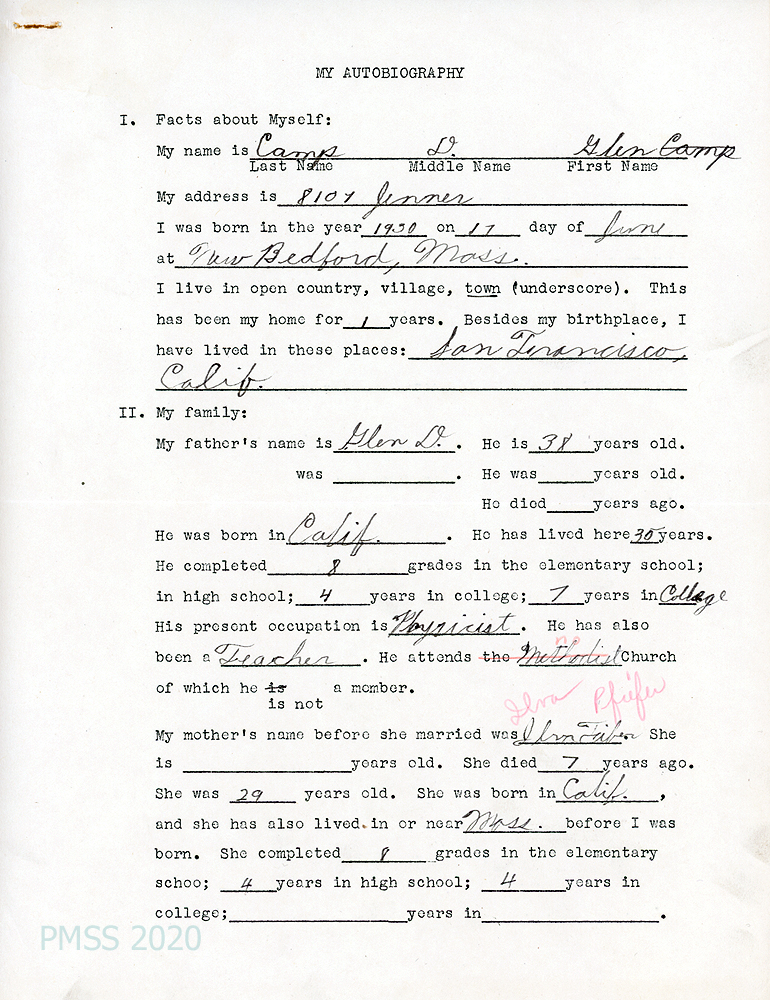 MY AUTOBIOGRAPHY
I. Facts about Myself:
My name is Camp D. Glen Camp
Last Name Middle Name First Name
My address is 8107 Jenner
I was born in the year 1930 on 17 day of June
at New Bedford, Mass.
I live in open country, village, town (underscore). This
has been my home for 1 years. Besides my birthplace, I
have lived in these places: San Francisco,
Calif.
II. My family:
My father's name is Glen D. . He is 38 years old.
was ________. He was ____ years old.
He died ____ years ago.
He was born in Calif. . He has lived here 30 years.
He completed 8 grades in the elementary school;
in high school; 4 years in college; 7 years in College
His present occupation is Physicist. He has also
been a Teacher . He attends the Methodist Church
no
of which he is a member.
is not
Ilva Pfiefer
My mother's name before she married was She
is ____________ years old. She died 7 years ago.
She was 29 years old. She was born in Calif. ,
and she has also lived in or near Mass. before I was
born. She completed 8 grades in the elementary
schoo; 4 years in high school; 4 years in
college; ____________ years in ____________.
PMSS 2020